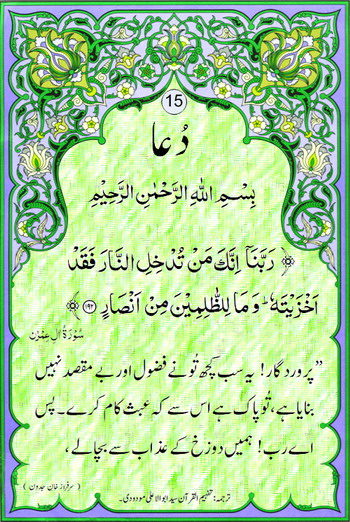 15
دُعا
بِسْمِ اللهِ الرَّحْمٰنِ الرَّحِيْمِ
﴿ رَبَّنَآ اِنَّكَ مَنْ تُدْخِلِ النَّارَ فَقَدْ
اَخْزَيْتَهٗ ؕ وَمَا لِلظّٰلِمِيْنَ مِنْ اَنْصَارٍ ﴿۱۹۲﴾
سُوْرَةُ اٰلِ عِمْرٰن
”پروردگار! یہ سب کچھ تُونے فضول اور بے مقصد نہیں
بنایا ہے، تُو پاک ہے اس سے کہ عبث کام کرے۔ پس
اے رب! ہمیں دوزخ کے عذاب سے بچالے،
( سرفراز خان جدون )
ترجمہ: تفہیم القرآن سید ابوالاعلیٰ مودودی۔